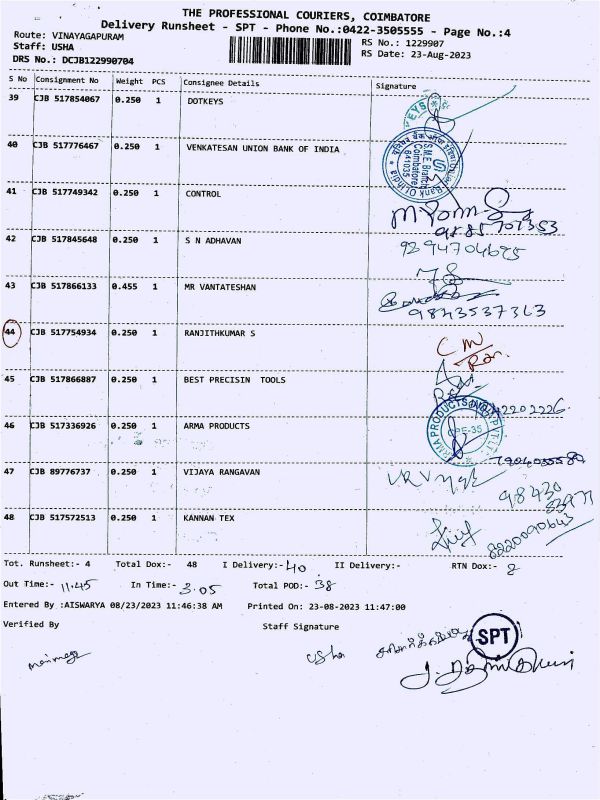 THE PROFESSIONAL COURIERS, COIMBATORE
Delivery Runsheet - SPT - Phone No.:0422-3505555 - Page No.:4
Route: VINAYAGAPURAM
Staff: USHA
DRS No.: DCJB122990704
RS No.: 1229907
RS Date: 23-Aug-2023
S No Consignment No Weight PCS Consignee Details Signature
39 CJB 517854067 0.250 1 DOTKEYS
40 CJB 517776467 0.250 1 VENKATESAN UNION BANK OF INDIA
S.M.E Branch
Coimbatore
641035
41 CJB 517749342 0.250 1 CONTROL
42 CJB 517845648 0.250 1 S N ADHAVAN
9294704625
43 CJB 517866133 0.455 1 MR VANTATESHAN
9843537363
44 CJB 517754934 0.250 1 RANJITHKUMAR S
45 CJB 517866887 0.250 1 BEST PRECISIN TOOLS
46 CJB 517336926 0.250 1 ARMA PRODUCTS
47 CJB 89776737 0.250 1 VIJAYA RANGAVAN
48 CJB 517572513 0.250 1 KANNAN TEX
8220090643
Tot. Runsheet:- 4 Total Dox:- 48 I Delivery:- 40 II Delivery:- RTN Dox:- 8
Out Time:- 11.45 In Time:- 3.05 Total POD:- 38
Entered By :AISWARYA 08/23/2023 11:46:38 AM Printed On: 23-08-2023 11:47:00
Verified By Staff Signature
Usha
SPT